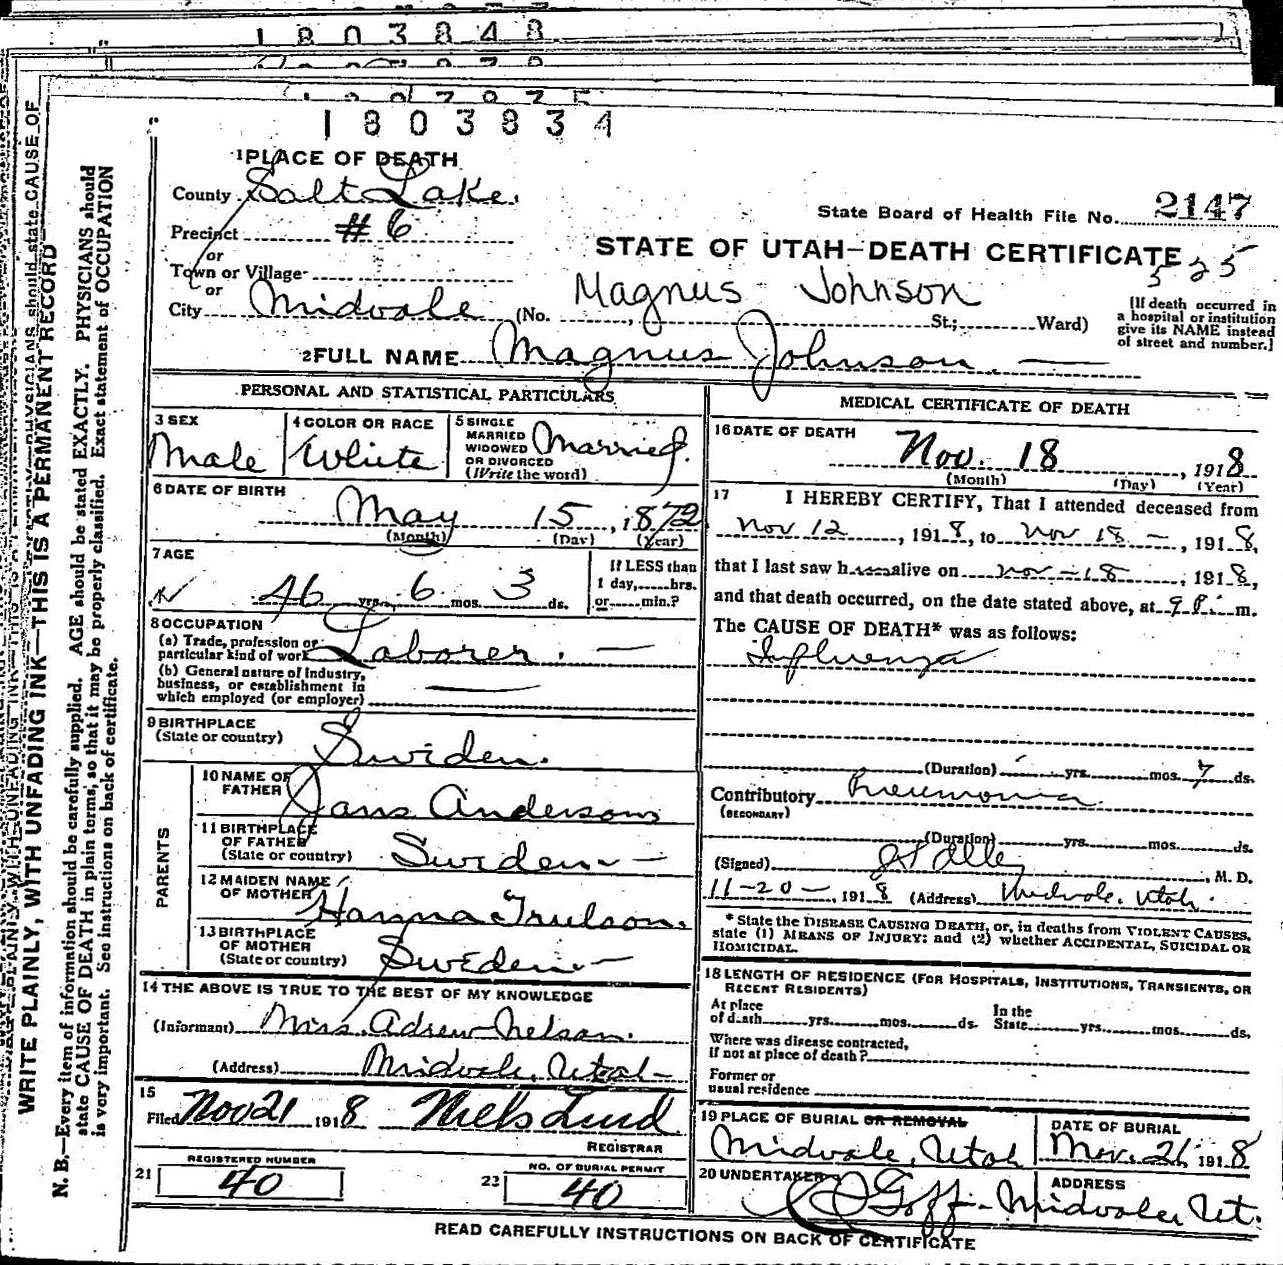 1803848
1803834
1 PLACE OF DEATH
County Salt Lake.
Precinct #6
or
Town or Village
or
City Midvale (No. St; Ward)
State Board of Health File No. 2147
STATE OF UTAH—DEATH CERTIFICATE
525
Magnus Johnson
[If death occurred in
a hospital or institution
give its NAME instead
of street and number.]
2 FULL NAME Magnus Johnson.
PERSONAL AND STATISTICAL PARTICULARS
3 SEX
Male
4 COLOR OR RACE
White
5 SINGLE
MARRIED
WIDOWED
OR DIVORCED
(Write the word)
Married.
6 DATE OF BIRTH
May 15, 1872
(Month) (Day) (Year)
7 AGE
46 yrs. 6 mos. 3 ds.
If LESS than
1 day, hrs.
or min.?
8 OCCUPATION
(a) Trade, profession or
particular kind of work Laborer.
(b) General nature of industry,
business, or establishment in
which employed (or employer)
9 BIRTHPLACE
(State or country) Swiden.
PARENTS
10 NAME OF
FATHER Jans Anderson
11 BIRTHPLACE
OF FATHER
(State or country) Swiden
12 MAIDEN NAME
OF MOTHER Hanna Trulson.
13 BIRTHPLACE
OF MOTHER
(State or country) Sweden
14 THE ABOVE IS TRUE TO THE BEST OF MY KNOWLEDGE
(Informant) Mrs. Adrew Nelson.
(Address) Midvale, Utah
15
Filed Nov 21 1918 Niels Lind
REGISTRAR
REGISTERED NUMBER
21 40
NO. OF BURIAL PERMIT
22 40
MEDICAL CERTIFICATE OF DEATH
16 DATE OF DEATH
Nov. 18, 1918
(Month) (Day) (Year)
17 I HEREBY CERTIFY, That I attended deceased from
Nov 12, 1918, to Nov 18, 1918,
that I last saw h alive on Nov 18, 1918,
and that death occurred, on the date stated above, at 9 P. m.
The CAUSE OF DEATH* was as follows:
Influenza
(Duration) yrs. mos. 7 ds.
Contributory Pneumonia
(SECONDARY)
(Duration) yrs. mos. ds.
(Signed) , M. D.
11-20-, 1918 (Address) Midvale, Utah.
* State the DISEASE CAUSING DEATH, or, in deaths from VIOLENT CAUSES,
state (1) MEANS OF INJURY; and (2) whether ACCIDENTAL, SUICIDAL OR
HOMICIDAL.
18 LENGTH OF RESIDENCE (FOR HOSPITALS, INSTITUTIONS, TRANSIENTS, OR
RECENT RESIDENTS)
At place
of death yrs. mos. ds.
In the
State yrs. mos. ds.
Where was disease contracted,
if not at place of death?
Former or
usual residence
19 PLACE OF BURIAL OR REMOVAL
Midvale, Utah
DATE OF BURIAL
Nov. 21 1918
20 UNDERTAKER
Goff
ADDRESS
Midvale Ut.
READ CAREFULLY INSTRUCTIONS ON BACK OF CERTIFICATE
WRITE PLAINLY, WITH UNFADING INK—THIS IS A PERMANENT RECORD
N. B.—Every item of information should be carefully supplied. AGE should be stated EXACTLY. PHYSICIANS should
state CAUSE OF DEATH in plain terms, so that it may be properly classified. Exact statement of OCCUPATION
is very important. See instructions on back of certificate.